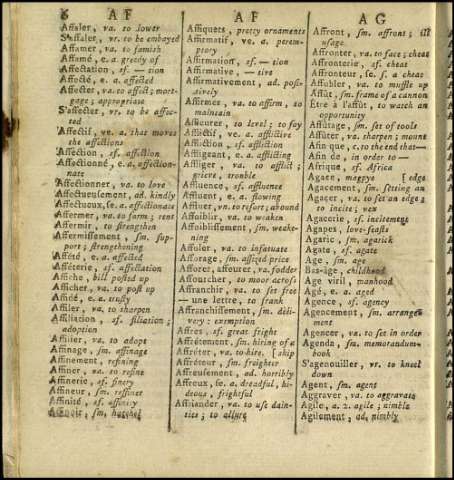 6 A F
Affaler, va. to lower
S'affaler, vr. to be embayed
Affamer, va. to famish
Affamé, e. a. greedy of
Affectation, sf. — tion
Affecté, e. a. affected
Affecter, va. to affect; mort-
gage; appropriate
S'affecter, vr. to be affec-
ted
Affectif, ve. a. that moves
the affections
Affection, sf. affection
Affectionné, e. a. affection-
nate
Affectionner, va. to love
Affectueusement, ad. kindly
Affectueux,se. a. affectionate
Affermer, va. to farm; rent
Affermir, to strengthen
Affermissement, sm. sup-
port; strengthening
Affété, e. a. affected
Afféterie, sf. affectation
Affiche, bill posted up
Afficher, va. to post up
Affidé, e. a. trusty
Affiler, va. to sharpen
Affiliation, sf. filiation;
adoption
Affilier, va. to adopt
Affinage, sm. affinage
Affinement, refining
Affiner, va. to refine
Affinerie, sf. finery
Affineur, sm. refiner
Affinité, sf. affinity
sm. hatchel
A F
Affiquets, pretty ornaments
Affirmatif, ve. a. perem-
ptory
Affirmation, sf. — tion
Affirmative, — tive
Affirmativement, ad. posit-
atively
Affirmer, va. to affirm, to
maintain
Affleurer, to level; to fay
Afflictif, ve. a. afflictive
Affliction, sf. affliction
Affligeant, e. a. afflicting
Affliger, va. to afflict;
grieve, trouble
Affluence, sf. affluence
Affluent, e. a. flowing
Affluer, vn. to resort; abound
Affoiblir, va. to weaken
Affoiblissement, sm. weake-
ning
Affoler, va. to infatuate
Afforage, sm. assized price
Afforer, affeurer, va. fodder
Affourcher, to moor across
Affranchir, va. to set free
— une lettre, to frank
Affranchissement, sm. deli-
very; exemption
Affres, sf. great fright
Affrétement, sm. hiring of a
Affréter, va. to hire. [ship
Affréteur, sm. freighter
Affreusement, ad. horribly
Affreux, se. a. dreadful, hi-
deous, frightful
Affriander, va. to use dain-
ties; to allure
A G
Affront, sm. affront; ill
usage
Affronter, va. to face; cheat
Affronterie, sf. cheat
Affronteur, se. s. a cheat
Affubler, va. to muffle up
Affût, sm. frame of a cannon
Etre à l'affût, to watch an
opportunity
Affûtage, sm. set of tools
Affûter, va. sharpen; mount
Afin que, c. to the end that—
Afin de, in order to —
Afrique, sf. Africa
Agacn, magpye [edge
Agacement, sm. setting an
Agacer, va. to set an edge;
to incite; vex
Agacerie, sf. incitement
Agapes, love-feasts
Agaric, sm. agarick
Agate, sf. agate
Age, sm. age
Bas-âge, childhood
Age viril, manhood
Agé, e. a. aged
Agence, sf. agency
Agencement, sm. arrange-
ment
Agencer, va. to set in order
Agenda, sm. memorandum-
book
S'agenouiller, vr. to kneel
down
Agent, sm. agent
Aggraver, va. to aggravate
Agile, a. 2. agile; nimble
Agilement, ad. nimbly